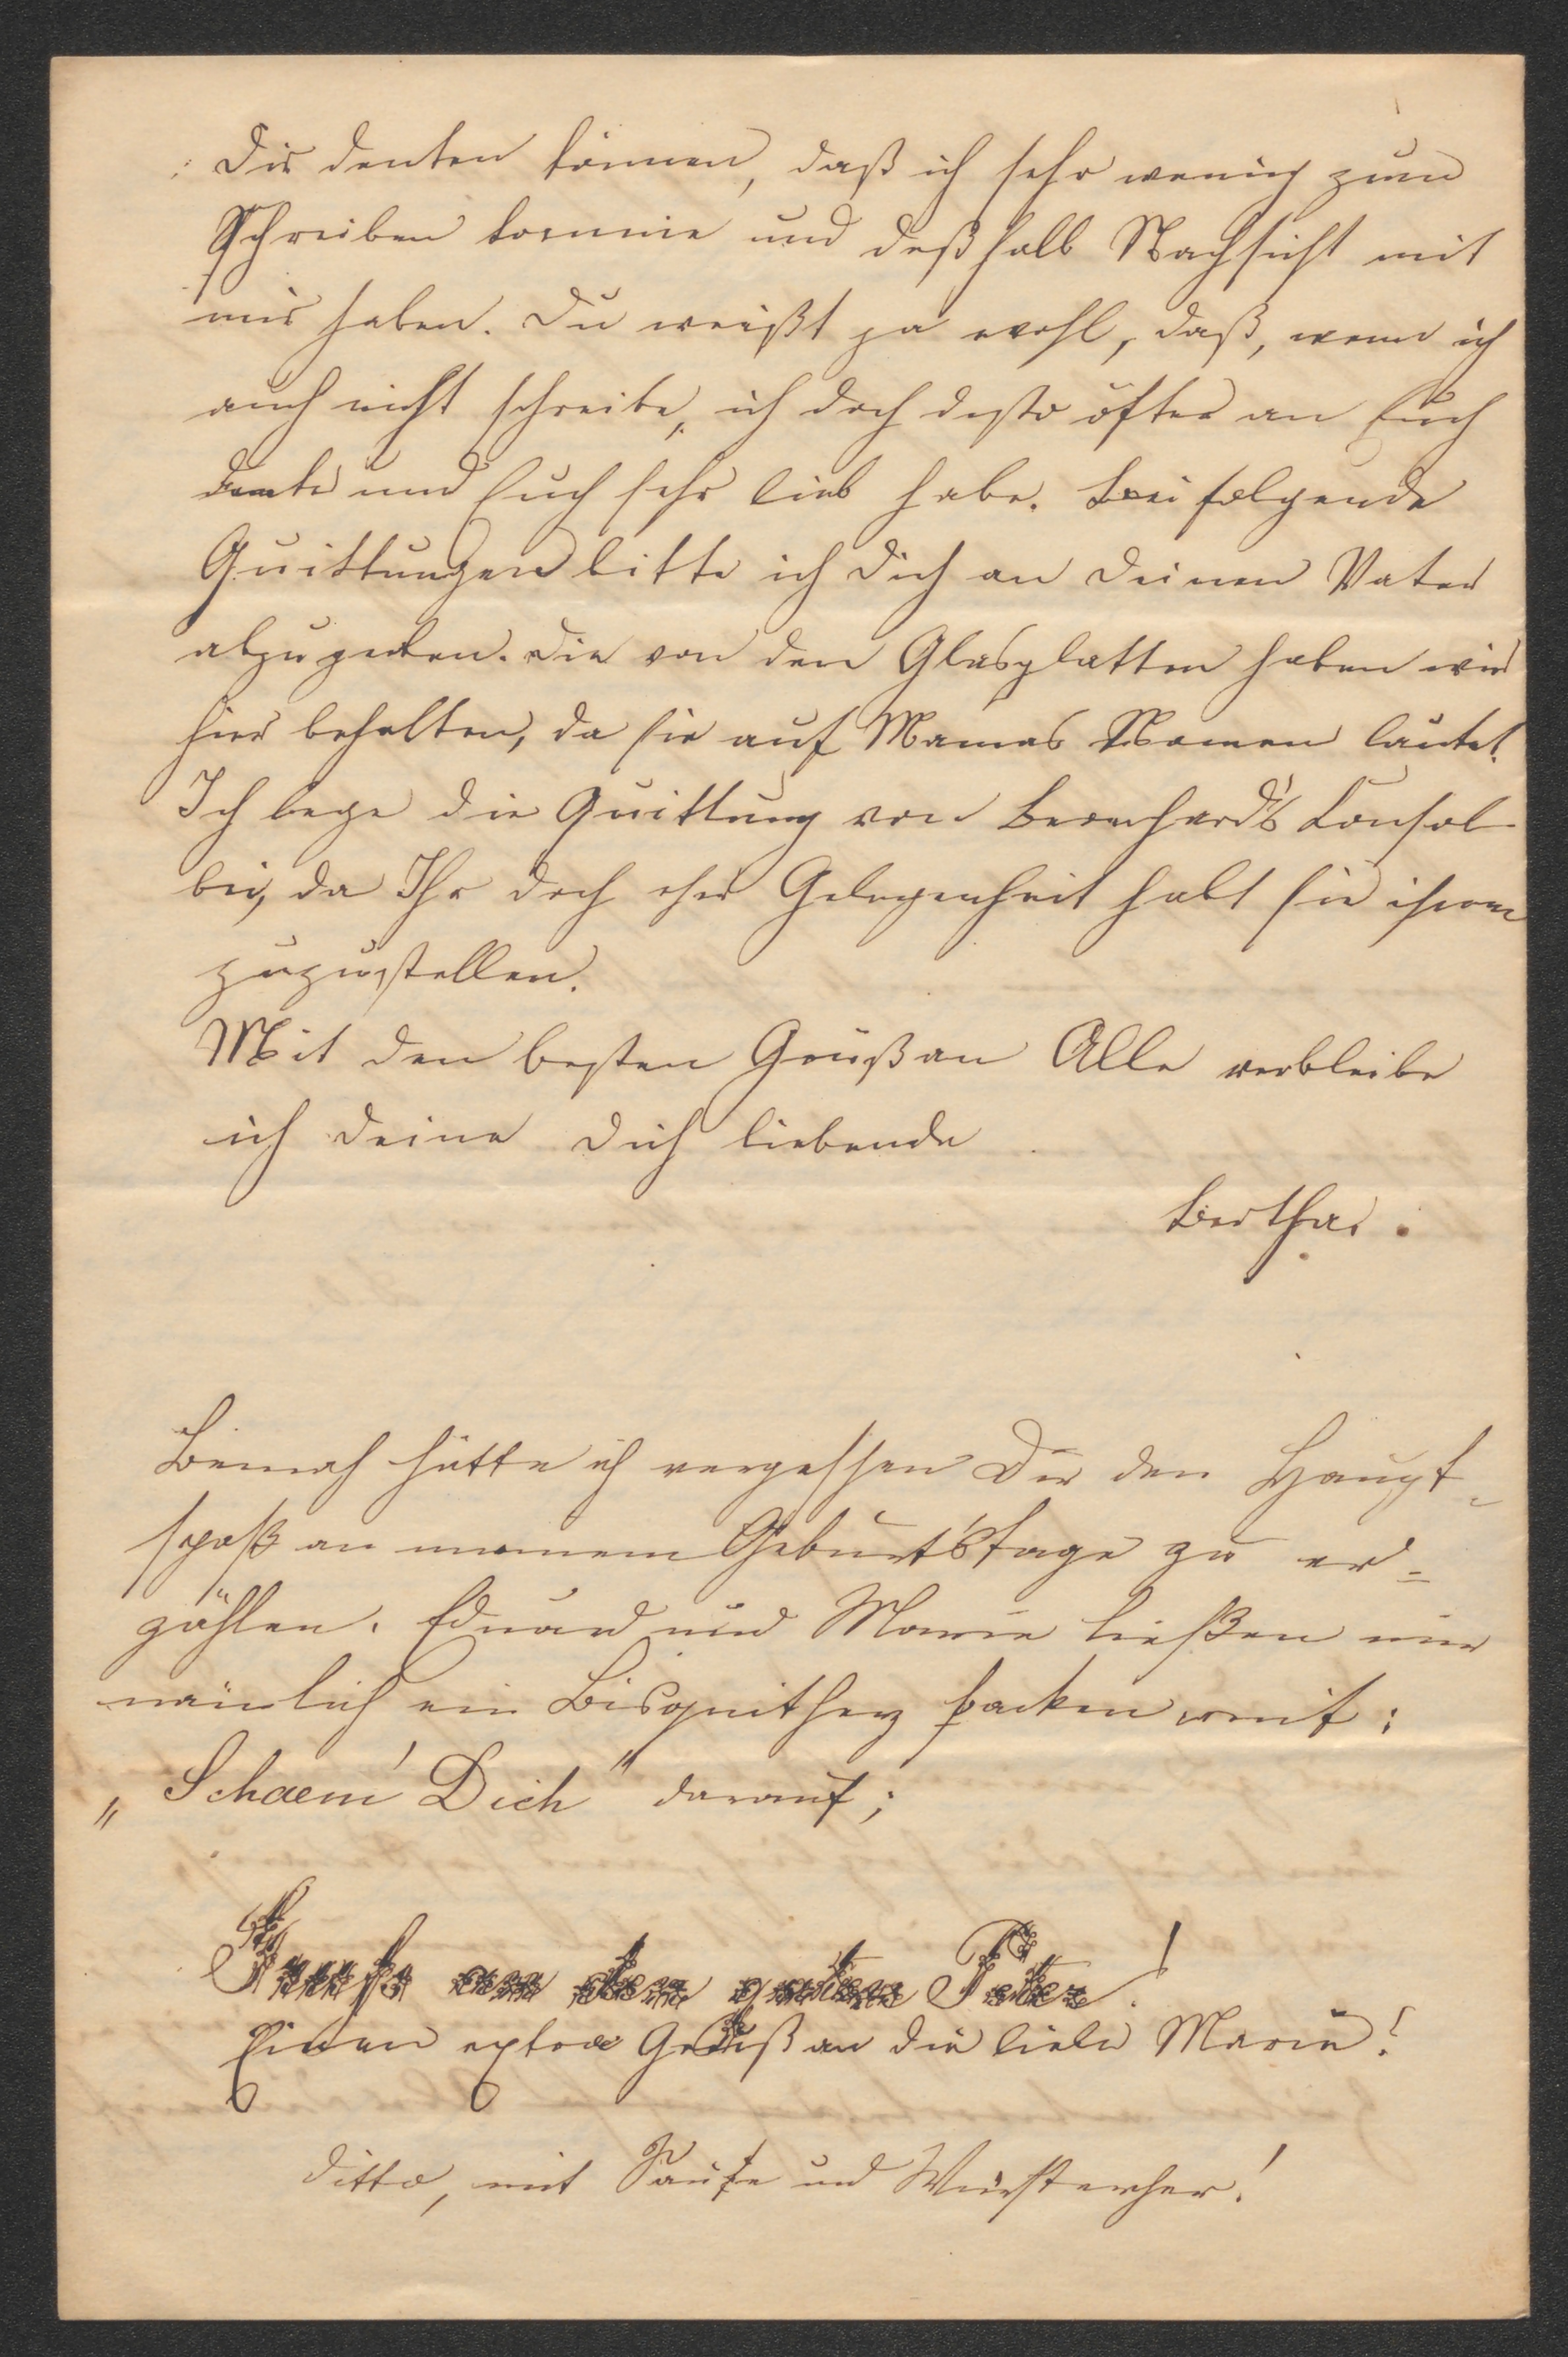 Dir denken können, daß ich sehr wenig zum
Schreiben komme und deßhalb Nachsicht mit
mir haben. Du weißt ja wohl, daß, wenn ich
auch nicht schreibe, ich doch desto öfter an Euch
denke und Euch sehr lieb habe. Beifolgende
Quittungen bitte ich Dich an Deinen Vater
abzugeben. Die von den Glasplatten haben wir
hier behalten, da sie auf Mamas Namen lautet.
Ich lege die Quittung von Bernhard's Consol
bei, da Ihr doch eher Gelegenheit habt sie ihm
zuzustellen.
Mit den besten Grüßen an Alle verbleibe
ich Deine Dich liebende
Bertha.
Beinah hätte ich vergessen Dir den Haupt-
spaß an meinem Geburtstage zu er-
zählen. Eduard und Marie ließen mir
nämlich ein Bisquitherz backen mit:
„Schaem' Dich" darauf;
an den guten Peter!
Einen extra Gruß an die liebe Marie!
ditto, mit und